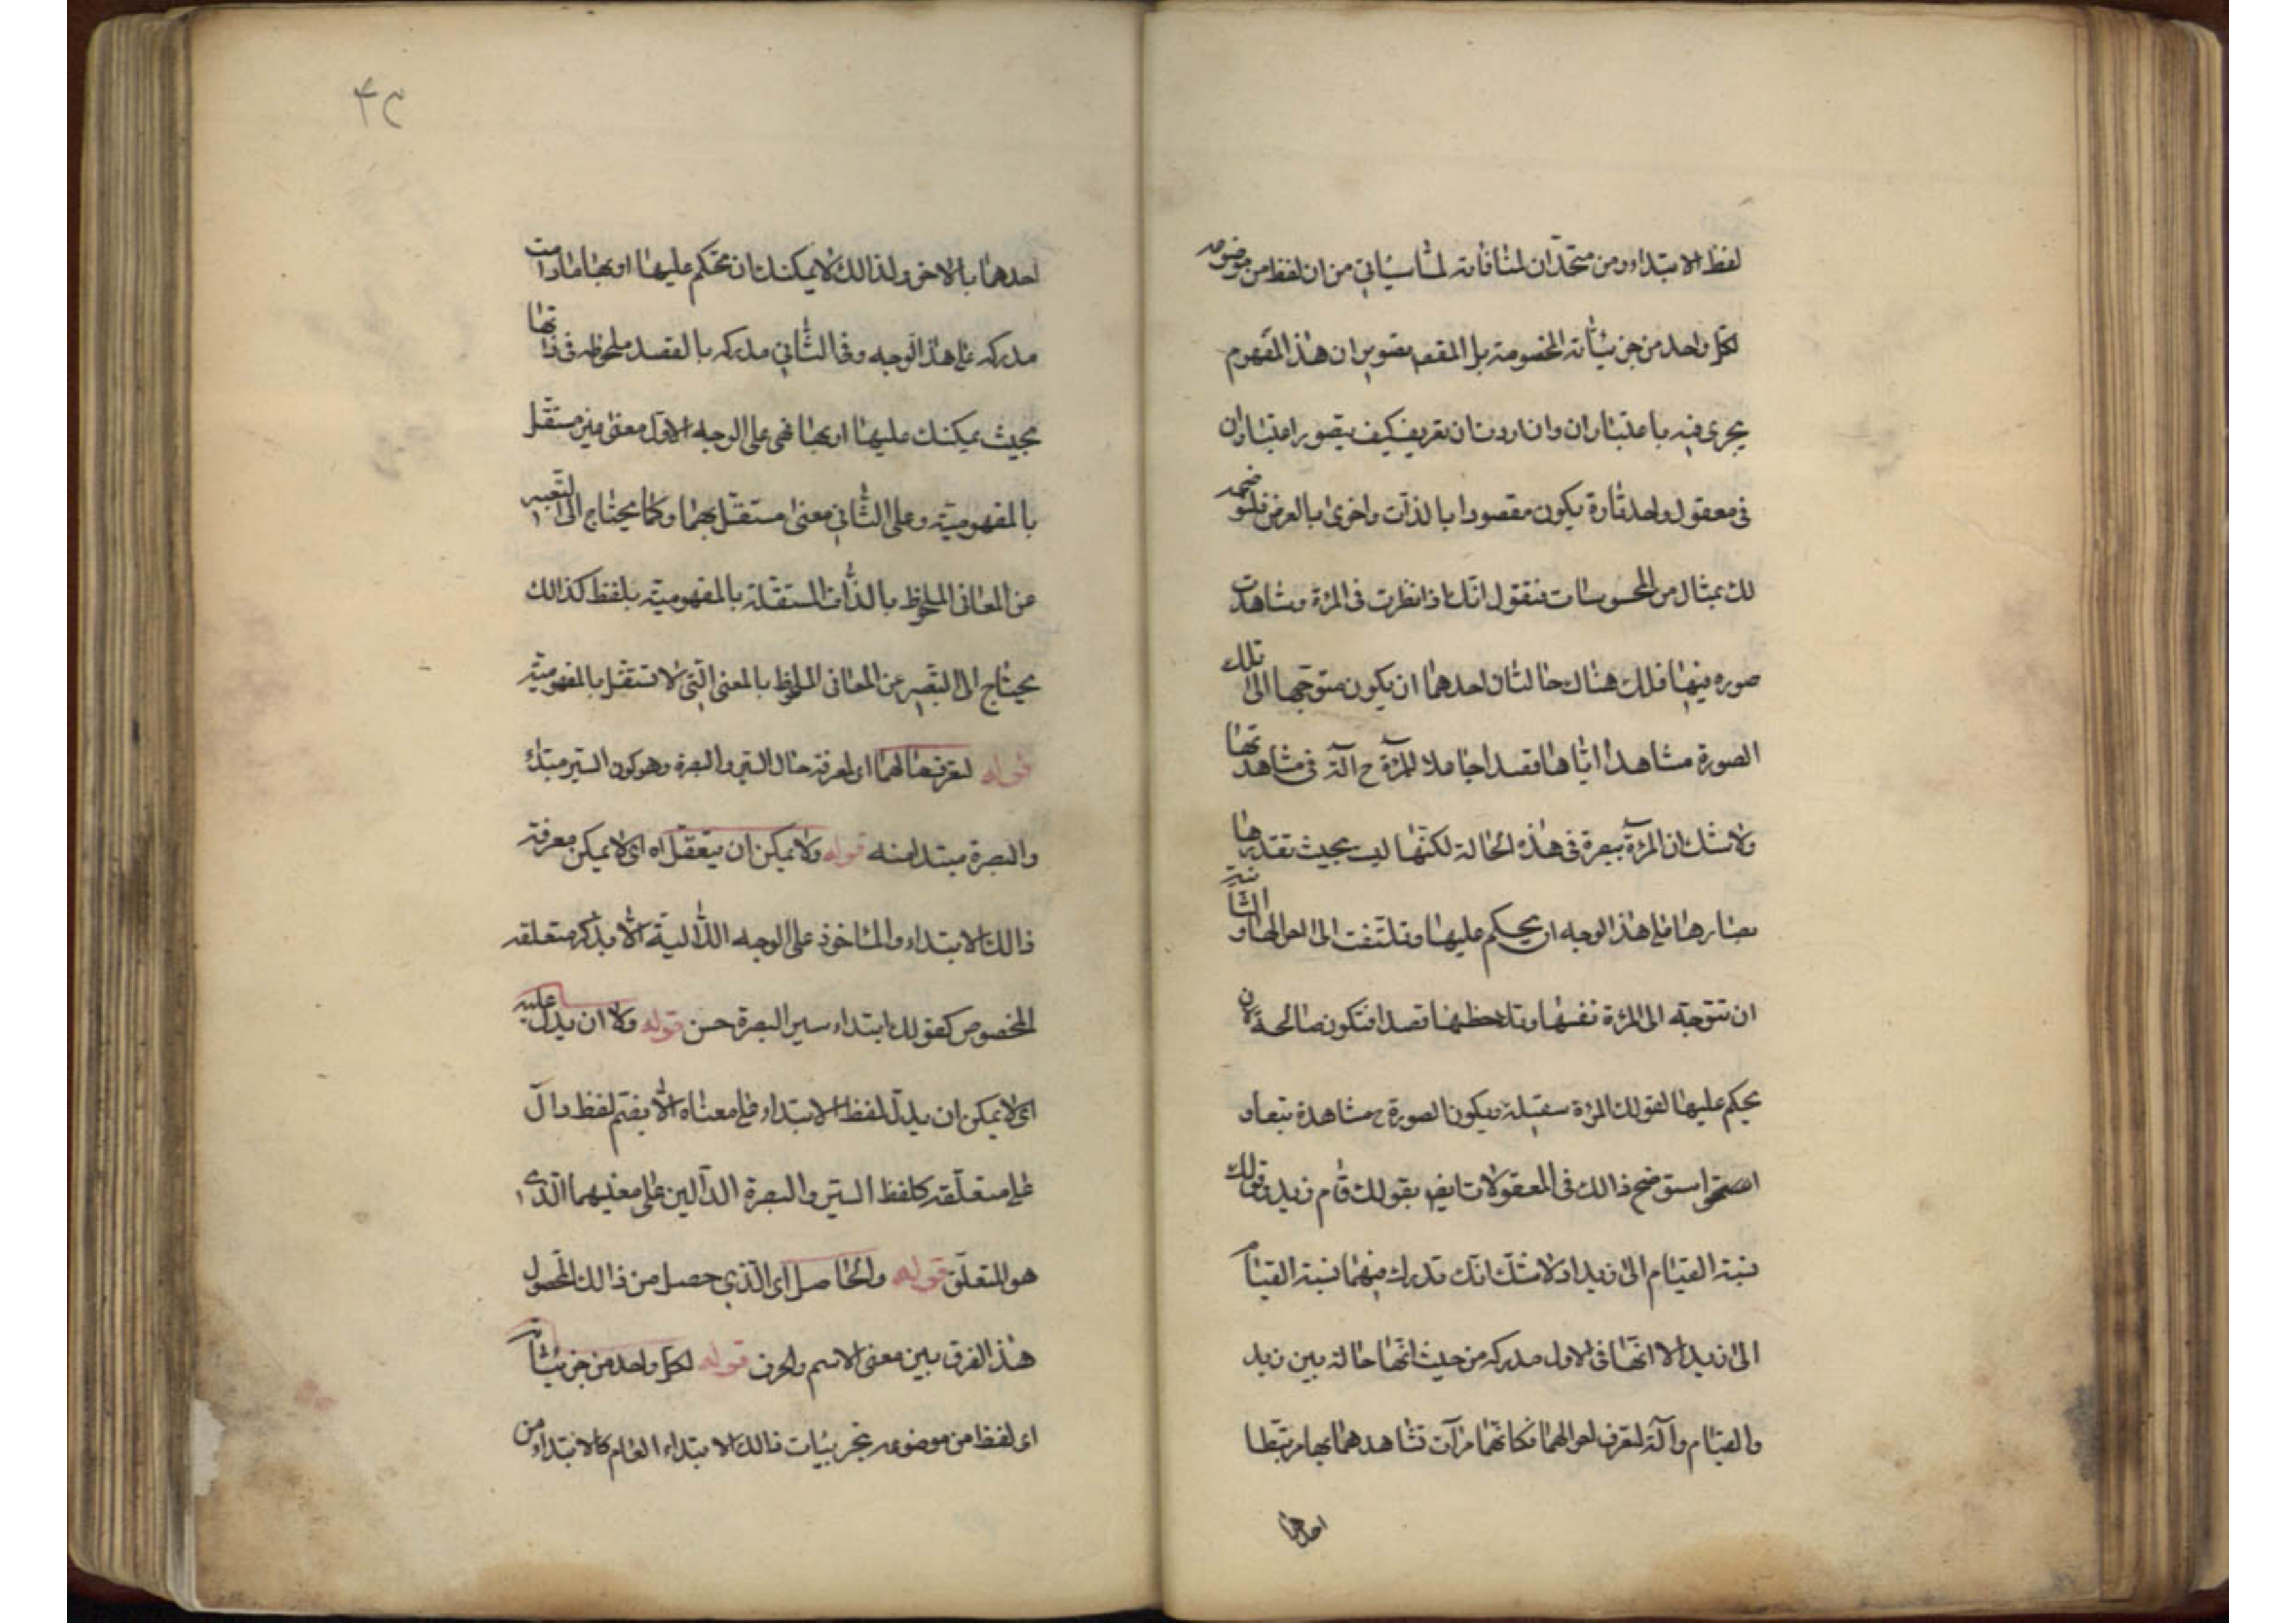 لفظ الابتداء ومن متحدان لمنافاته لما سياتي من ان لفظ من موضوعه
لكل واحد من جزئياته المخصوصة بل المقصد تصوير ان هذا المفهوم
يجري فيه باعتباران وان اردت ان تعريف كيف يتصور اعتباران
في معقول واحد تارة يكون مقصودا بالذات واخرى بالعرض فلنوضحه
لك بمثال من المحسوسات فنقول انك اذا نظرت في المرءة وشاهدت
صوره فيها فلك هناك حالتان احدهما ان يكون متوجها الى تلك
الصورة مشاهدا اياها قصدا جاعلا للمرءة ح آلة في مشاهدتها
ولا شك ان المرءة مبصرة في هذه الحالة لكنها ليست بحيث تقتدرها
بصارها على هذا الوجه ان يحكم عليها وتلتفت الى احوالها والثانية
ان تتوجه الى المرءة نفسها وتلاحظها قصدا فتكون صالحة لان
يحكم عليها لقولك المرءة سقيلة ويكون الصورة ح مشاهدة تبعا و
استوضح ذالك في المعقولات ايضا بقولك قام زيد وقولك
نسبة القيام الى زيد اذ لا شك انك تدرك فيهما نسبة القيام
الى زيد الا انها في الاول مدركه من حيث انها حالة بين زيد
والقيام وآلة لتعرف احوالهما فكانهما مرآت تشاهدهما بها مرتبطا
احدهما
۴۳
احدهما بالاخر ولذالك لا يمكنك ان تحكم عليها او بها ما دامت
مدركه على هذا الوجه وفي الثاني مدركه بالقصد ملحوظه في ذاتها
بحيث يمكنك عليها او بها فهي على الوجه الاول معنى غير مستقل
بالمفهومية وعلى الثاني معنى مستقل بهما وكما يحتاج الى التعبير
عن المعاني الملحوظ بالذات المستقلة بالمفهومية بلفظ كذالك
يحتاج الى التعبير عن المعاني الملحوظ بالمعنى التي لا تستقل بالمفهومية
قوله لتعرف حالهما اى لمعرفة حال السير والبصرة وهو كون السير مبتدا
والبصرة مبتدا منه قوله ولا يمكن ان يتعقل اه اى لا يمكن معرفة
ذالك الابتداء والماخوذ على الوجه الالية الا بذكر متعلقه
المخصوص كقولك ابتداء سير البصرة حسن قوله ولا ان يدل عليه
اى لا يمكن ان يدل لفظ الابتداء على معناه الا بضم لفظ دال
على متعلقه كلفظ السير والبصرة الدالين على معنيهما الذى
هو المتعلق قوله والحاصل اى الذي حصل من ذالك المحصول
هذا الفرق بين معنى الاسم والحرف قوله لكل واحد من جزئياته
اى لفظ من موضوعه بجزئيات ذالك الابتداء العام كالابتداء من